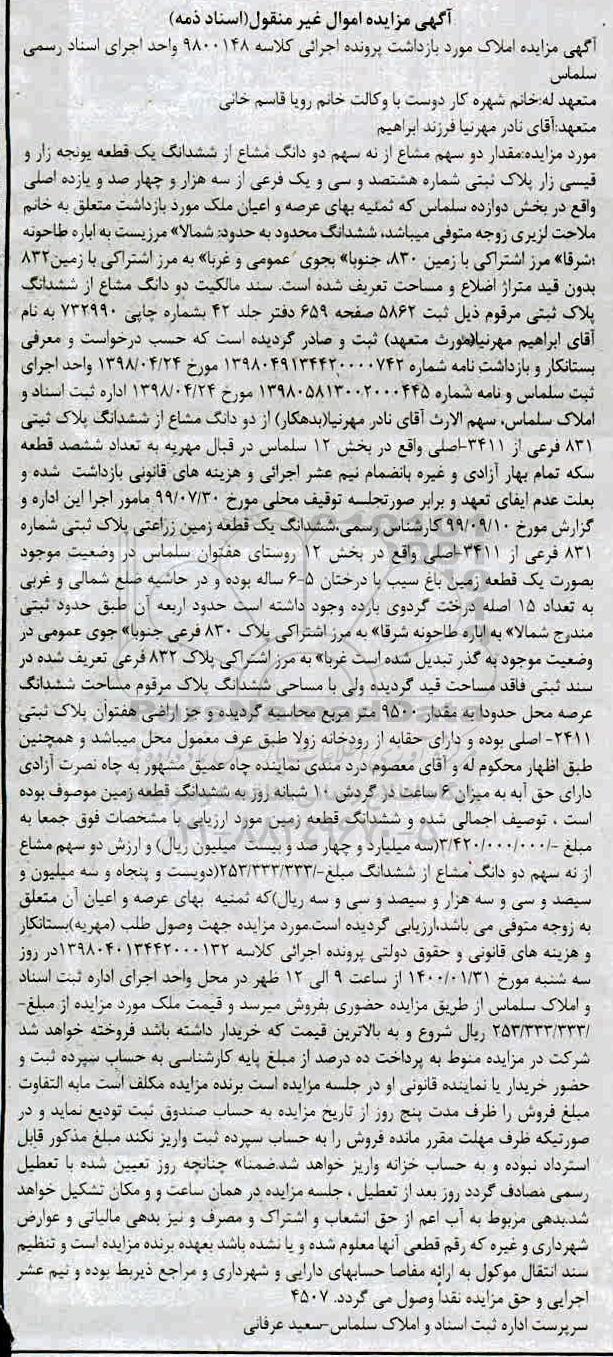 آگهی مزایده اموال غیر منقول(اسناد ذمه)
آگهی مزایده املاک مورد بازداشت پرونده اجرائی کلاسه ۹۸۰۰۱۴۸ واحد اجرای اسناد رسمی
سلماس
متعهد له:خانم شهره کار دوست با وکالت خانم رویا قاسم خانی
متعهد:آقای نادر مهرنیا فرزند ابراهیم
مورد مزایده:مقدار دو سهم مشاع از نه سهم دو دانگ مشاع از ششدانگ یک قطعه یونجه زار و
قیسی زار پلاک ثبتی شماره هشتصد و سی و یک فرعی از سه هزار و چهار صد و یازده اصلی
واقع در بخش دوازده سلماس که ثمنیه بهای عرصه و اعیان ملک مورد بازداشت متعلق به خانم
ملاحت لزیری زوجه متوفی میباشد، ششدانگ محدود به حدود: شمالا» مرزیست به اباره طاحونه
؛شرقا» مرز اشتراکی با زمین ۸۳۰، جنوبا» بجوی عمومی و غربا» به مرز اشتراکی با زمین۸۳۲
بدون قید متراژ اضلاع و مساحت تعریف شده است. سند مالکیت دو دانگ مشاع از ششدانگ
پلاک ثبتی مرقوم ذیل ثبت ۵۸۶۲ صفحه ۶۵۹ دفتر جلد ۴۲ بشماره چاپی ۷۳۲۹۹۰ به نام
آقای ابراهیم مهرنیا(مورث متعهد) ثبت و صادر گردیده است که حسب درخواست و معرفی
بستانکار و بازداشت نامه شماره ۱۳۹۸۰۴۹۱۳۴۴۲۰۰۰۰۷۴۲ مورخ ۱۳۹۸/۰۴/۲۴ واحد اجرای
ثبت سلماس و نامه شماره ۱۳۹۸۰۵۸۱۳۰۰۲۰۰۰۴۴۵ مورخ ۱۳۹۸/۰۴/۲۴ اداره ثبت اسناد و
املاک سلماس، سهم الارث آقای نادر مهرنیا(بدهکار) از دو دانگ مشاع از ششدانگ پلاک ثبتی
۸۳۱ فرعی از ۳۴۱۱-اصلی واقع در بخش ۱۲ سلماس در قبال مهریه به تعداد ششصد قطعه
سکه تمام بهار آزادی و غیره بانضمام نیم عشر اجرائی و هزینه های قانونی بازداشت شده و
بعلت عدم ایفای تعهد و برابر صورتجلسه توقیف محلی مورخ ۹۹/۰۷/۳۰ مامور اجرا این اداره و
گزارش مورخ ۹۹/۰۹/۱۰ کارشناس رسمی،ششدانگ یک قطعه زمین زراعتی پلاک ثبتی شماره
۸۳۱ فرعی از ۳۴۱۱-اصلی واقع در بخش ۱۲ روستای هفتوان سلماس در وضعیت موجود
بصورت یک قطعه زمین باغ سیب با درختان ۵-۶ ساله بوده و در حاشیه ضلع شمالی و غربی
به تعداد ۱۵ اصله درخت گردوی بارده وجود داشته است حدود اربعه آن طبق حدود ثبتی
مندرج شمالا» به اباره طاحونه شرقا» به مرز اشتراکی پلاک ۸۳۰ فرعی جنوبا» جوی عمومی در
وضعیت موجود به گذر تبدیل شده است غربا» به مرز اشتراکی پلاک ۸۳۲ فرعی تعریف شده در
سند ثبتی فاقد مساحت قید گردیده ولی با مساحی ششدانگ پلاک مرقوم مساحت ششدانگ
عرصه محل حدودا به مقدار ۹۵۰۰ متر مربع محاسبه گردیده و جز اراضی هفتوان پلاک ثبتی
۲۴۱۱- اصلی بوده و دارای حقابه از رودخانه زولا طبق عرف معمول محل میباشد و همچنین
طبق اظهار محکوم له و آقای معصوم درد مندی نماینده چاه عمیق مشهور به چاه نصرت آزادی
دارای حق آبه به میزان ۶ ساعت در گردش ۱۰ شبانه روز به ششدانگ قطعه زمین موصوف بوده
است ، توصیف اجمالی شده و ششدانگ قطعه زمین مورد ارزیابی با مشخصات فوق جمعا به
مبلغ -/۳/۴۲۰/۰۰۰/۰۰۰(سه میلیارد و چهار صد و بیست میلیون ریال) و ارزش دو سهم مشاع
از نه سهم دو دانگ مشاع از ششدانگ مبلغ-/۲۵۳/۳۳۳/۳۳۳(دویست و پنجاه و سه میلیون و
سیصد و سی و سه هزار و سیصد و سی و سه ریال)که ثمنیه بهای عرصه و اعیان آن متعلق
به زوجه متوفی می باشد،ارزیابی گردیده است.مورد مزایده جهت وصول طلب (مهریه)بستانکار
و هزینه های قانونی و حقوق دولتی پرونده اجرائی کلاسه ۱۳۹۸۰۴۰۱۳۴۴۲۰۰۰۱۳۲در روز
سه شنبه مورخ ۱۴۰۰/۰۱/۳۱ از ساعت ۹ الی ۱۲ ظهر در محل واحد اجرای اداره ثبت اسناد
و املاک سلماس از طریق مزایده حضوری بفروش میرسد و قیمت ملک مورد مزایده از مبلغ-
/۲۵۳/۳۳۳/۳۳۳ ریال شروع و به بالاترین قیمت که خریدار داشته باشد فروخته خواهد شد
شرکت در مزایده منوط به پرداخت ده درصد از مبلغ پایه کارشناسی به حساب سپرده ثبت و
حضور خریدار یا نماینده قانونی او در جلسه مزایده است برنده مزایده مکلف است مابه التفاوت
مبلغ فروش را ظرف مدت پنج روز از تاریخ مزایده به حساب صندوق ثبت تودیع نماید و در
صورتیکه ظرف مهلت مقرر مانده فروش را به حساب سپرده ثبت واریز نکند مبلغ مذکور قابل
استرداد نبوده و به حساب خزانه واریز خواهد شد.ضمنا» چنانچه روز تعیین شده با تعطیل
رسمی مصادف گردد روز بعد از تعطیل ، جلسه مزایده در همان ساعت و و مکان تشکیل خواهد
شد.بدهی مربوط به آب اعم از حق انشعاب و اشتراک و مصرف و نیز بدهی مالیاتی و عوارض
شهرداری و غیره که رقم قطعی آنها معلوم شده و یا نشده باشد بعهده برنده مزایده است و تنظیم
سند انتقال موکول به ارائه مفاصا حسابهای دارایی و شهرداری و مراجع ذیربط بوده و نیم عشر
اجرایی و حق مزایده نقداً وصول می گردد. ۴۵۰۷
سرپرست اداره ثبت اسناد و املاک سلماس-سعید عرفانی